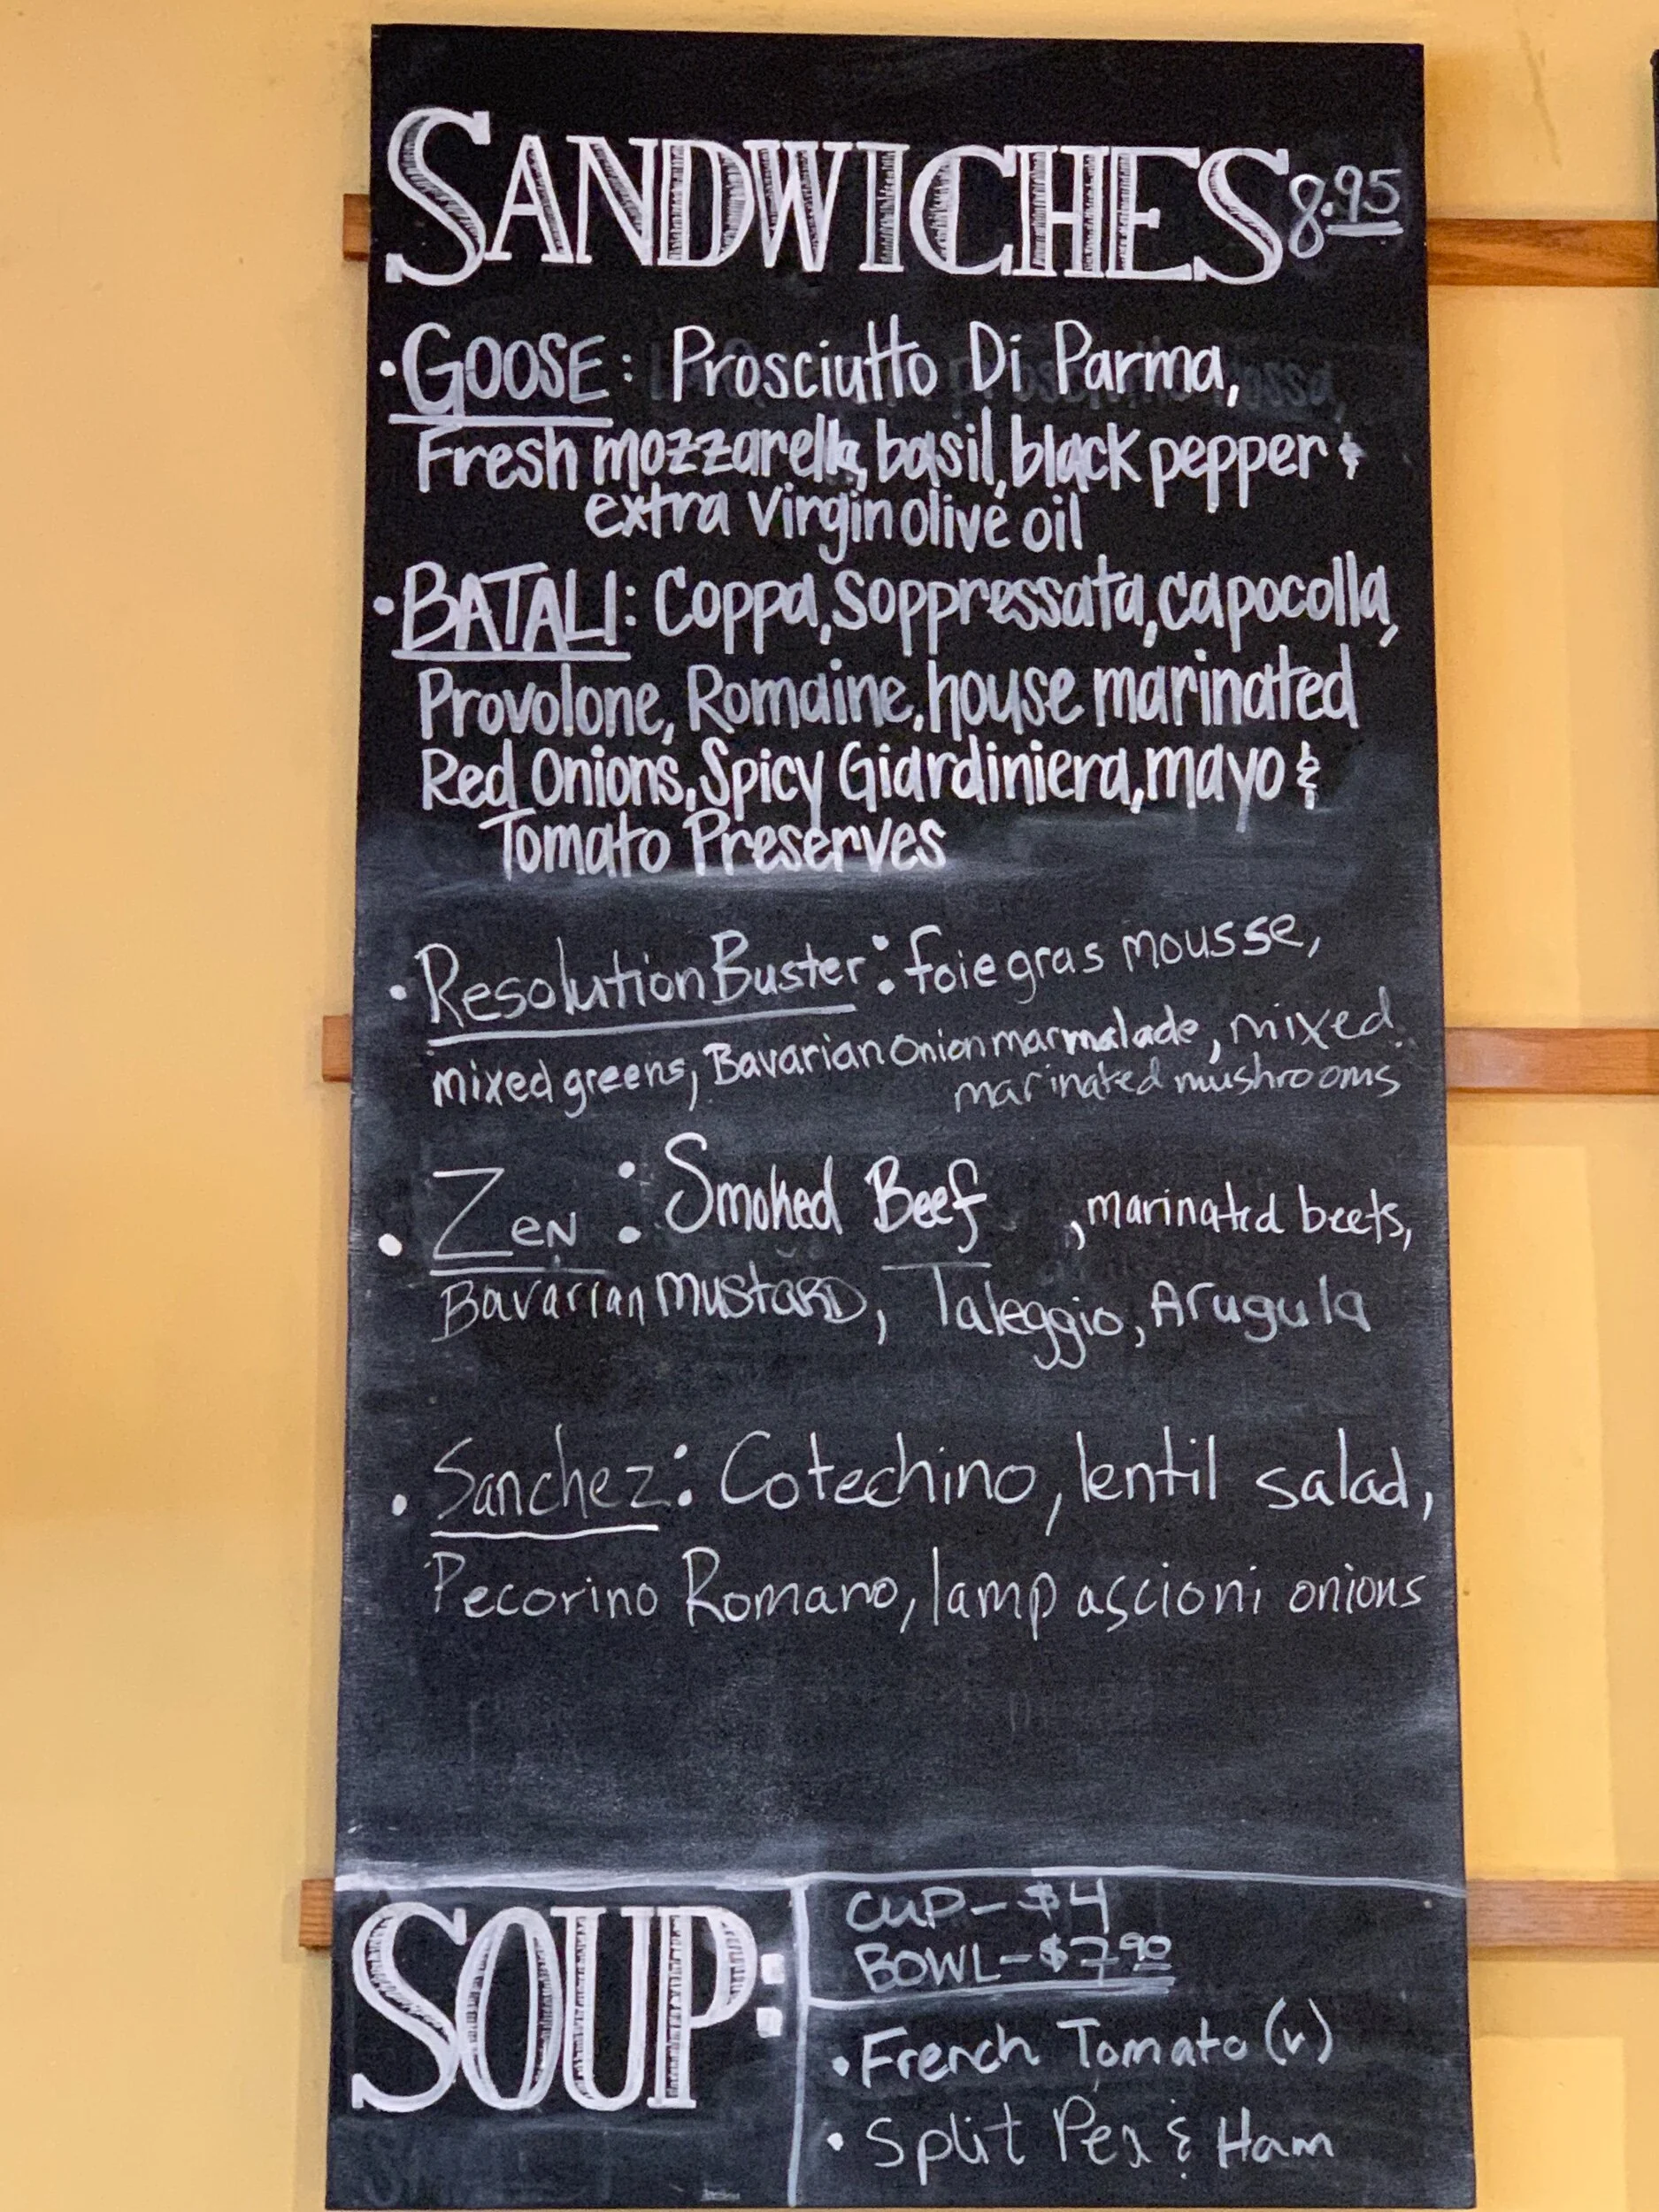 SANDWICHES 8.95
• GOOSE: Prosciutto Di Parma,
Fresh mozzarella, basil, black pepper &
extra virgin olive oil
• BATALI: Coppa, Soppressata, capocolla,
Provolone, Romaine, house marinated
Red Onions, Spicy Giardiniera, mayo &
Tomato Preserves
• Resolution Buster: foie gras mousse,
mixed greens, Bavarian Onion marmalade, mixed
marinated mushrooms
• Zen: Smoked Beef, marinated beets,
Bavarian Mustard, Taleggio, Arugula
• Sanchez: Cotechino, lentil salad,
Pecorino Romano, lampascioni onions
SOUP:
CUP - $4
BOWL - $7.90
• French Tomato (v)
• Split Pea & Ham